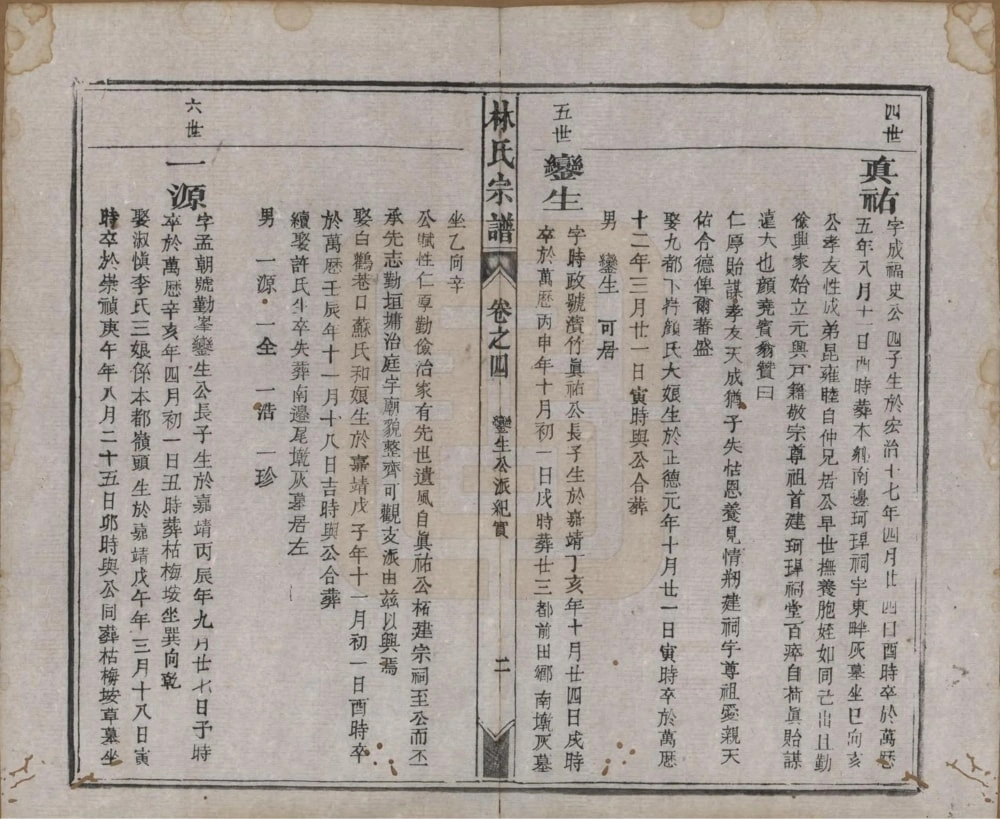 四世
真祐
字成福史公四子生於宏治十七年四月廿四日酉時卒於萬歷
五年八月十二日酉時葬本鄉南邊珂珵祠宇東畔灰墓坐巳向亥
公孝友性成弟昆雍睦自仲兄居公早世撫養胞姪如同己出且勤
儉興家始立元興戶籍敬宗尊祖首建珂珵祠堂百瘁自荷眞貽謀
遠大也顏堯賓翁贊曰
仁厚貽謀孝友天成猶子失怙恩養見情刱建祠宇尊祖愛親天
佑合德俾爾蕃盛
娶九都下杵顏氏大娘生於正德元年十月廿一日寅時卒於萬歷
十二年三月廿一日寅時與公合葬
男 鑾生 可居
五世
鑾生
字時政號濆竹眞祐公長子生於嘉靖丁亥年十月廿四日戌時
卒於萬歷丙申年十月初一日戌時葬廿三都前田鄉南墩灰墓
林氏宗譜 卷之四 鑾生公派紀實 二
坐乙向辛
公賦性仁厚勤儉治家有先世遺風自眞祐公栢建宗祠至公而丕
承先志勤垣墉治庭宇廟貌整齊可觀支派由茲以興焉
娶白鶴巷口蘇氏和娘生於嘉靖戊子年十一月初一日酉時卒
於萬歷壬辰年十一月十八日吉時與公合葬
續娶許氏生卒失葬南邊尾墩灰墓居左
男 一源 一全 一浩 一珍
六世
一源
字孟朝號勤峯鑾生公長子生於嘉靖丙辰年九月廿七日子時
卒於萬歷辛亥年四月初一日丑時葬枯梅垵坐巽向乾
娶淑慎李氏三娘係本都嶺頭生於嘉靖戊午年三月十八日寅
時卒於崇禎庚午年八月二十五日卯時與公同葬枯梅垵草墓坐